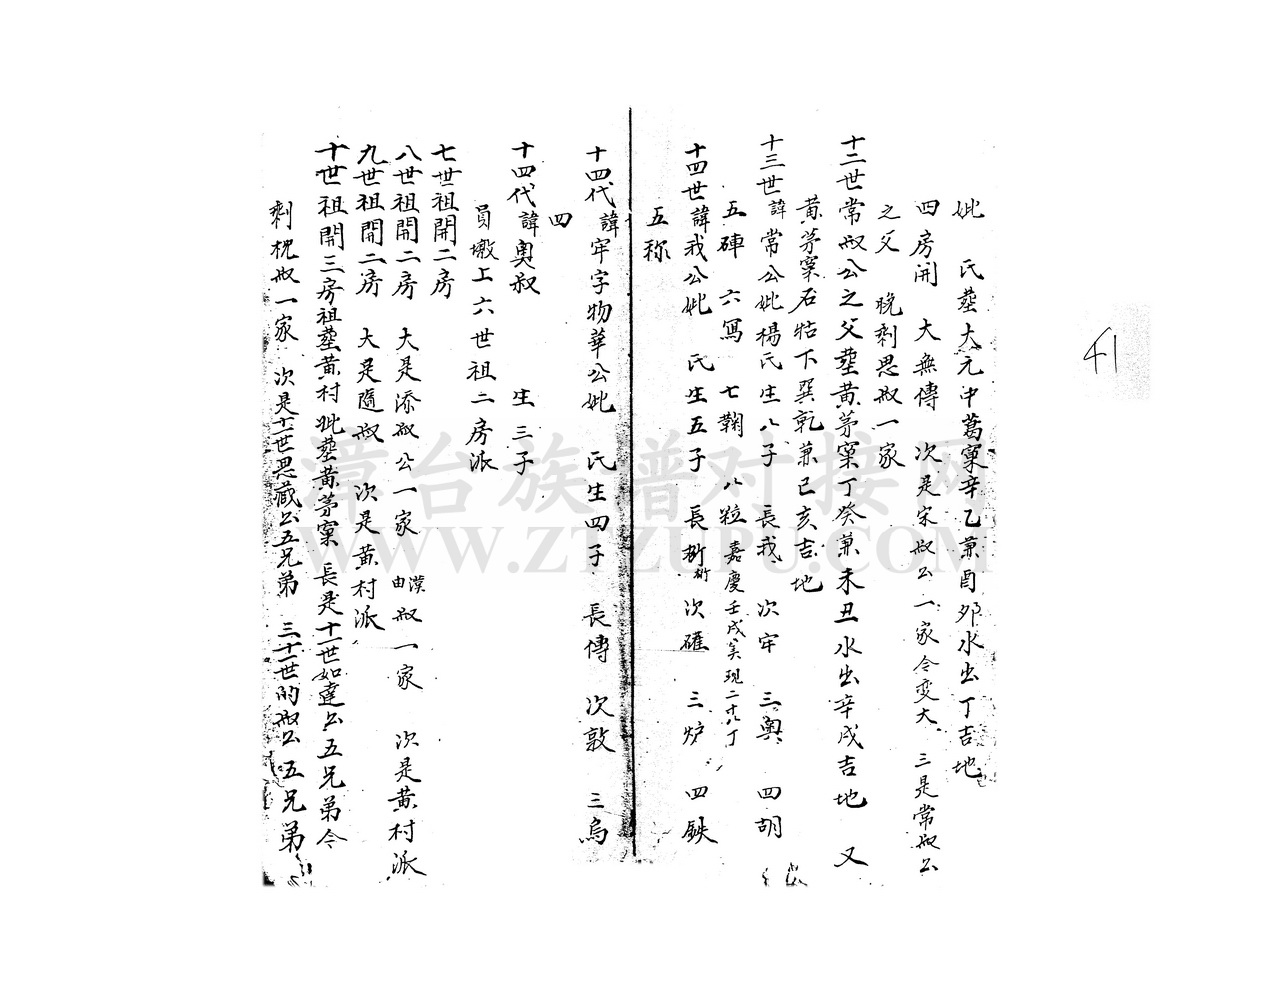 妣 氏塟大元中萬窠辛乙兼酉夘水出丁吉地
四房開 大無傳 次是宋叔公一家令变大 三是常叔公
之父 晚剩思叔一家
十二世常叔公之父塟黄茅窠丁癸兼未丑水出辛戌吉地 又
黄茅窠石牯下巽乾兼已亥吉地
十三世諱常公妣楊氏生八子 長我 次牢 三奥 四胡
五硨 六寫 七鞠 八粒 嘉慶壬戌美現二十八丁
十四世諱我公妣 氏生五子 長斬 次碓 三炉 四鉄
五称
十四代諱牢字物華公妣 氏生四子 長傳 次敦 三烏
四
十四代諱奥叔 生三子
員墩上六世祖二房派
七世祖開二房
八世祖開二房 大是添叔公一家 由漢叔一家 次是黄村派
九世祖開二房 大是隨叔 次是黄村派
十世祖開三房祖塟黄村妣塟黄茅窠 長是十一世如達公五兄弟令
剩枕叔一家 次是十一世思藏公五兄弟 三十一世的叔公五兄弟
41
漳台族谱对接网
WWW.ZTZUPU.COM